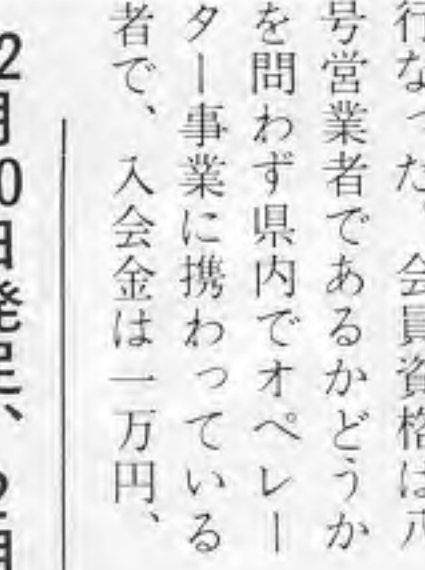 行なった。会員資格は八
号営業者であるかどうか
を問わず県内でオペレー
ター事業に携わっている
者で、入会金は一万円、
2月10日発足、2月